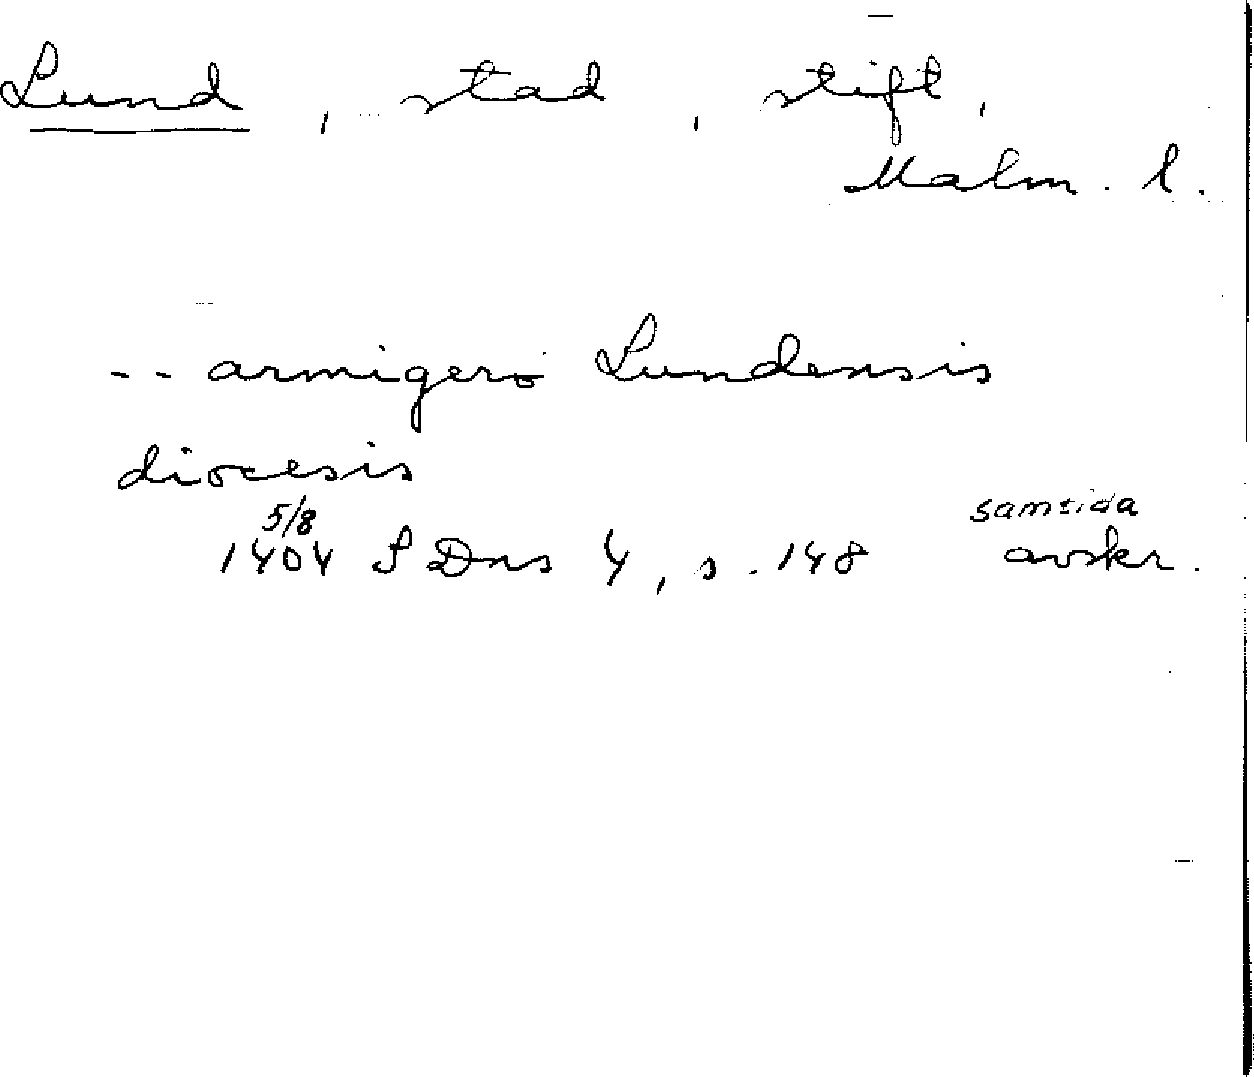 Lund, stad, stift,
Malm. l.
-- armigero Lundensis
diocesis
5/8 samtida
1404 SDns 4, s. 148 avskr.